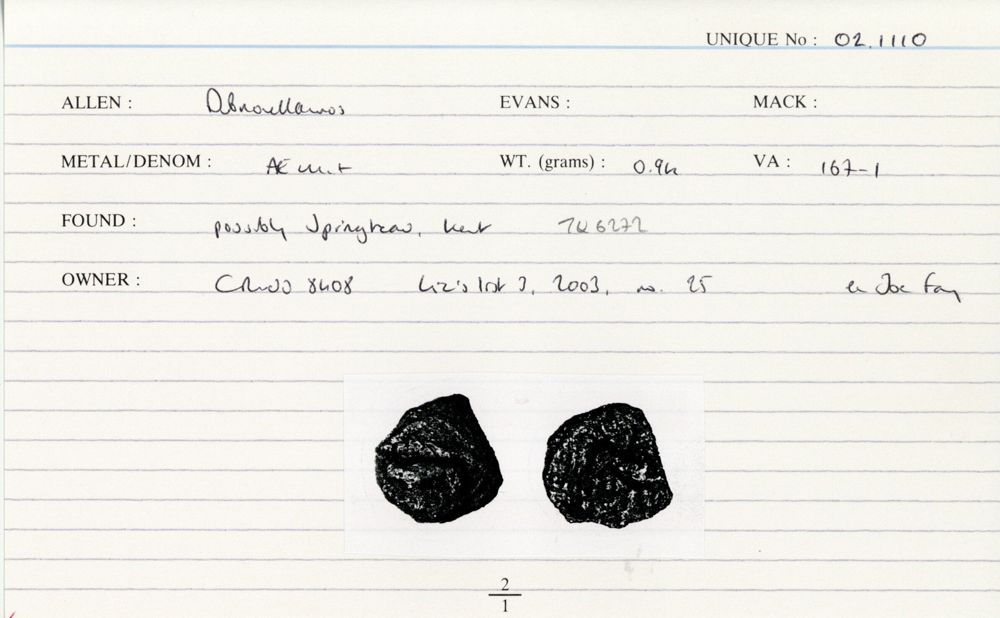 UNIQUE No : 02.1110
ALLEN : Dubnovellaunos EVANS : MACK :
METAL/DENOM : AE unit WT. (grams) : 0.94 VA : 167-1
FOUND : possibly Springhead, Kent TQ 6272
OWNER : CR 8408 Liz's list 3, 2003, no. 25 ex Joe Fay
2
1